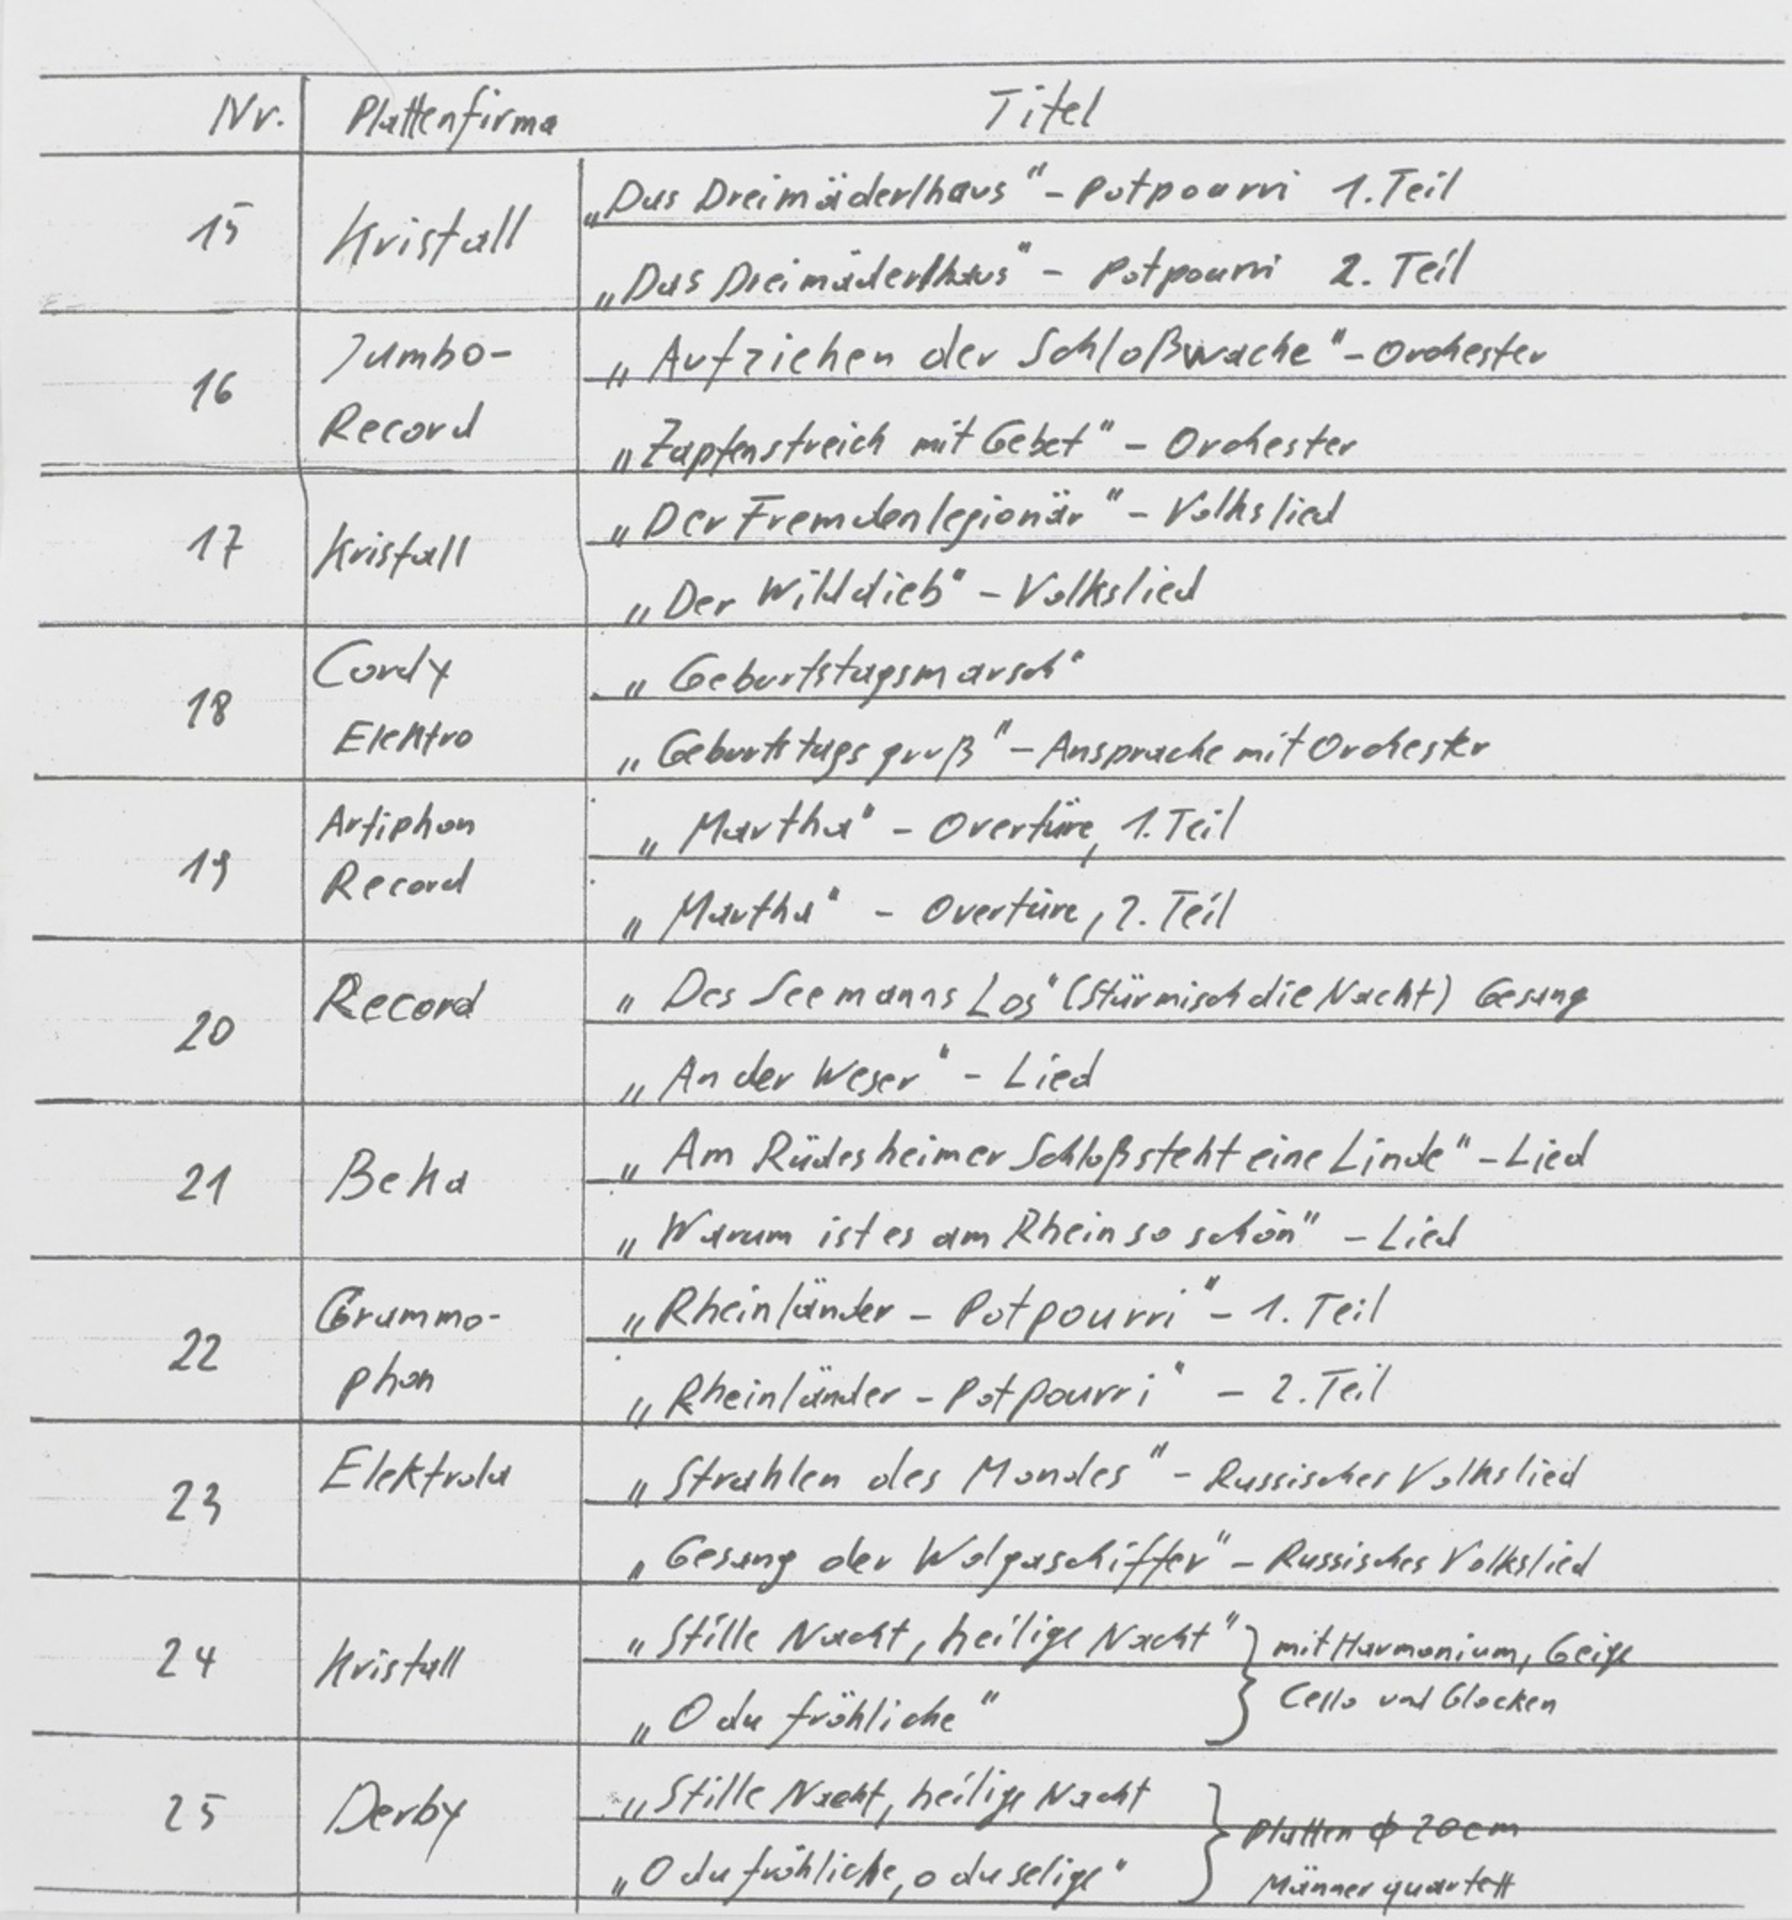 Nr. Plattenfirma Titel
15 Kristall „Das Dreimäderlhaus" - Potpourri 1. Teil
„Das Dreimäderlhaus" - Potpourri 2. Teil
16 Jumbo- „Aufziehen der Schloßwache" - Orchester
Record „Zapfenstreich mit Gebet" - Orchester
17 Kristall „Der Fremdenlegionär" - Volkslied
„Der Wilddieb" - Volkslied
18 Cordy „Geburtstagsmarsch"
Elektro „Geburtstagsgruß" - Ansprache mit Orchester
19 Artiphon „Martha" - Overtüre, 1. Teil
Record „Martha" - Overtüre, 2. Teil
20 Record „Des Seemanns Los" (Stürmisch die Nacht) Gesang
„An der Weser" - Lied
21 Beka „Am Rüdesheimer Schloß steht eine Linde" - Lied
„Warum ist es am Rhein so schön" - Lied
22 Grammo- „Rheinländer - Potpourri" - 1. Teil
phon „Rheinländer - Potpourri" - 2. Teil
23 Elektrola „Strahlen des Mondes" - Russisches Volkslied
„Gesang der Wolgaschiffer" - Russisches Volkslied
24 Kristall „Stille Nacht, heilige Nacht" } mit Harmonium, Geige
„O du fröhliche" Cello und Glocken
25 Derby „Stille Nacht, heilige Nacht } Platten ϕ 20cm
„O du fröhliche, o du selige" Männerquartett